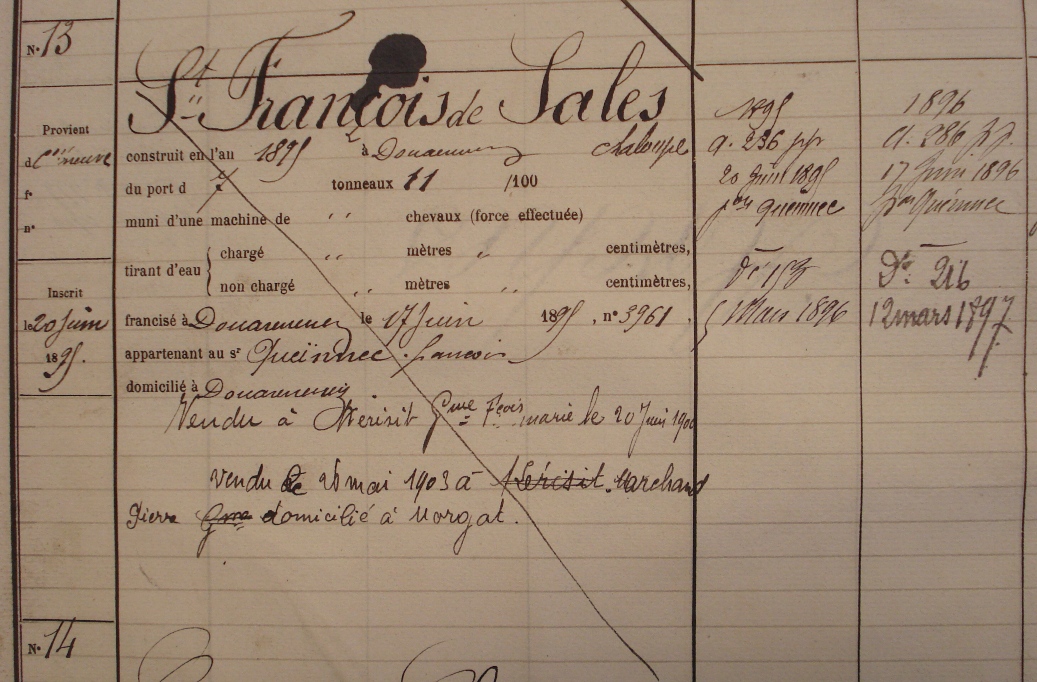 N° 13
St François de Sales
Provient
d Con neuve
f°
n°
construit en l'an 1895 à Douarnenez chaloupe
du port d 7 tonneaux 11 /100
muni d'une machine de " chevaux (force effectuée)
tirant d'eau { chargé " mètres " centimètres,
non chargé " mètres " centimètres,
Inscrit
le 20 Juin
1895.
francisé à Douarnenez le 17 Juin 1895, n° 3961
appartenant au sr Queïnnec françois
domicilié à Douarnenez
Vendu à Kérisit Gme Fçois marié le 20 Juin 1900
vendu le 26 mai 1903 à Kérisit Marchand
Pierre Gme domicilié à Morgat.
1895
a. 236
20 Juin 1895
Queinnec
Dt 153
1 Mars 1896
1896
a. 286
17 Juin 1896
Queinnec
Dt 216
12 mars 1897
N° 14